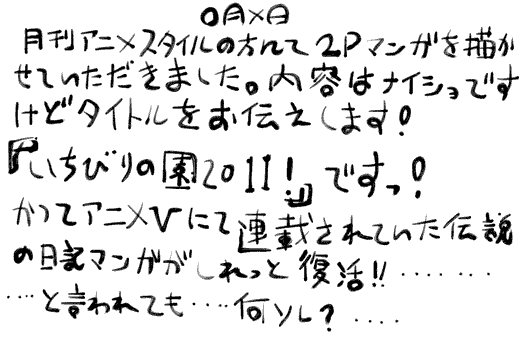 〇月×日
月刊アニメスタイルの方んて2Pマンガを描か
せていただきました。内容はナイショです
けどタイトルをお伝えします!
『いちびりの園2011!』ですっ!
かつてアニメVにて連載されていた伝説
の日記マンガがしれっと復活!!‥‥‥‥
‥‥と言われても‥‥何ソレ?‥‥